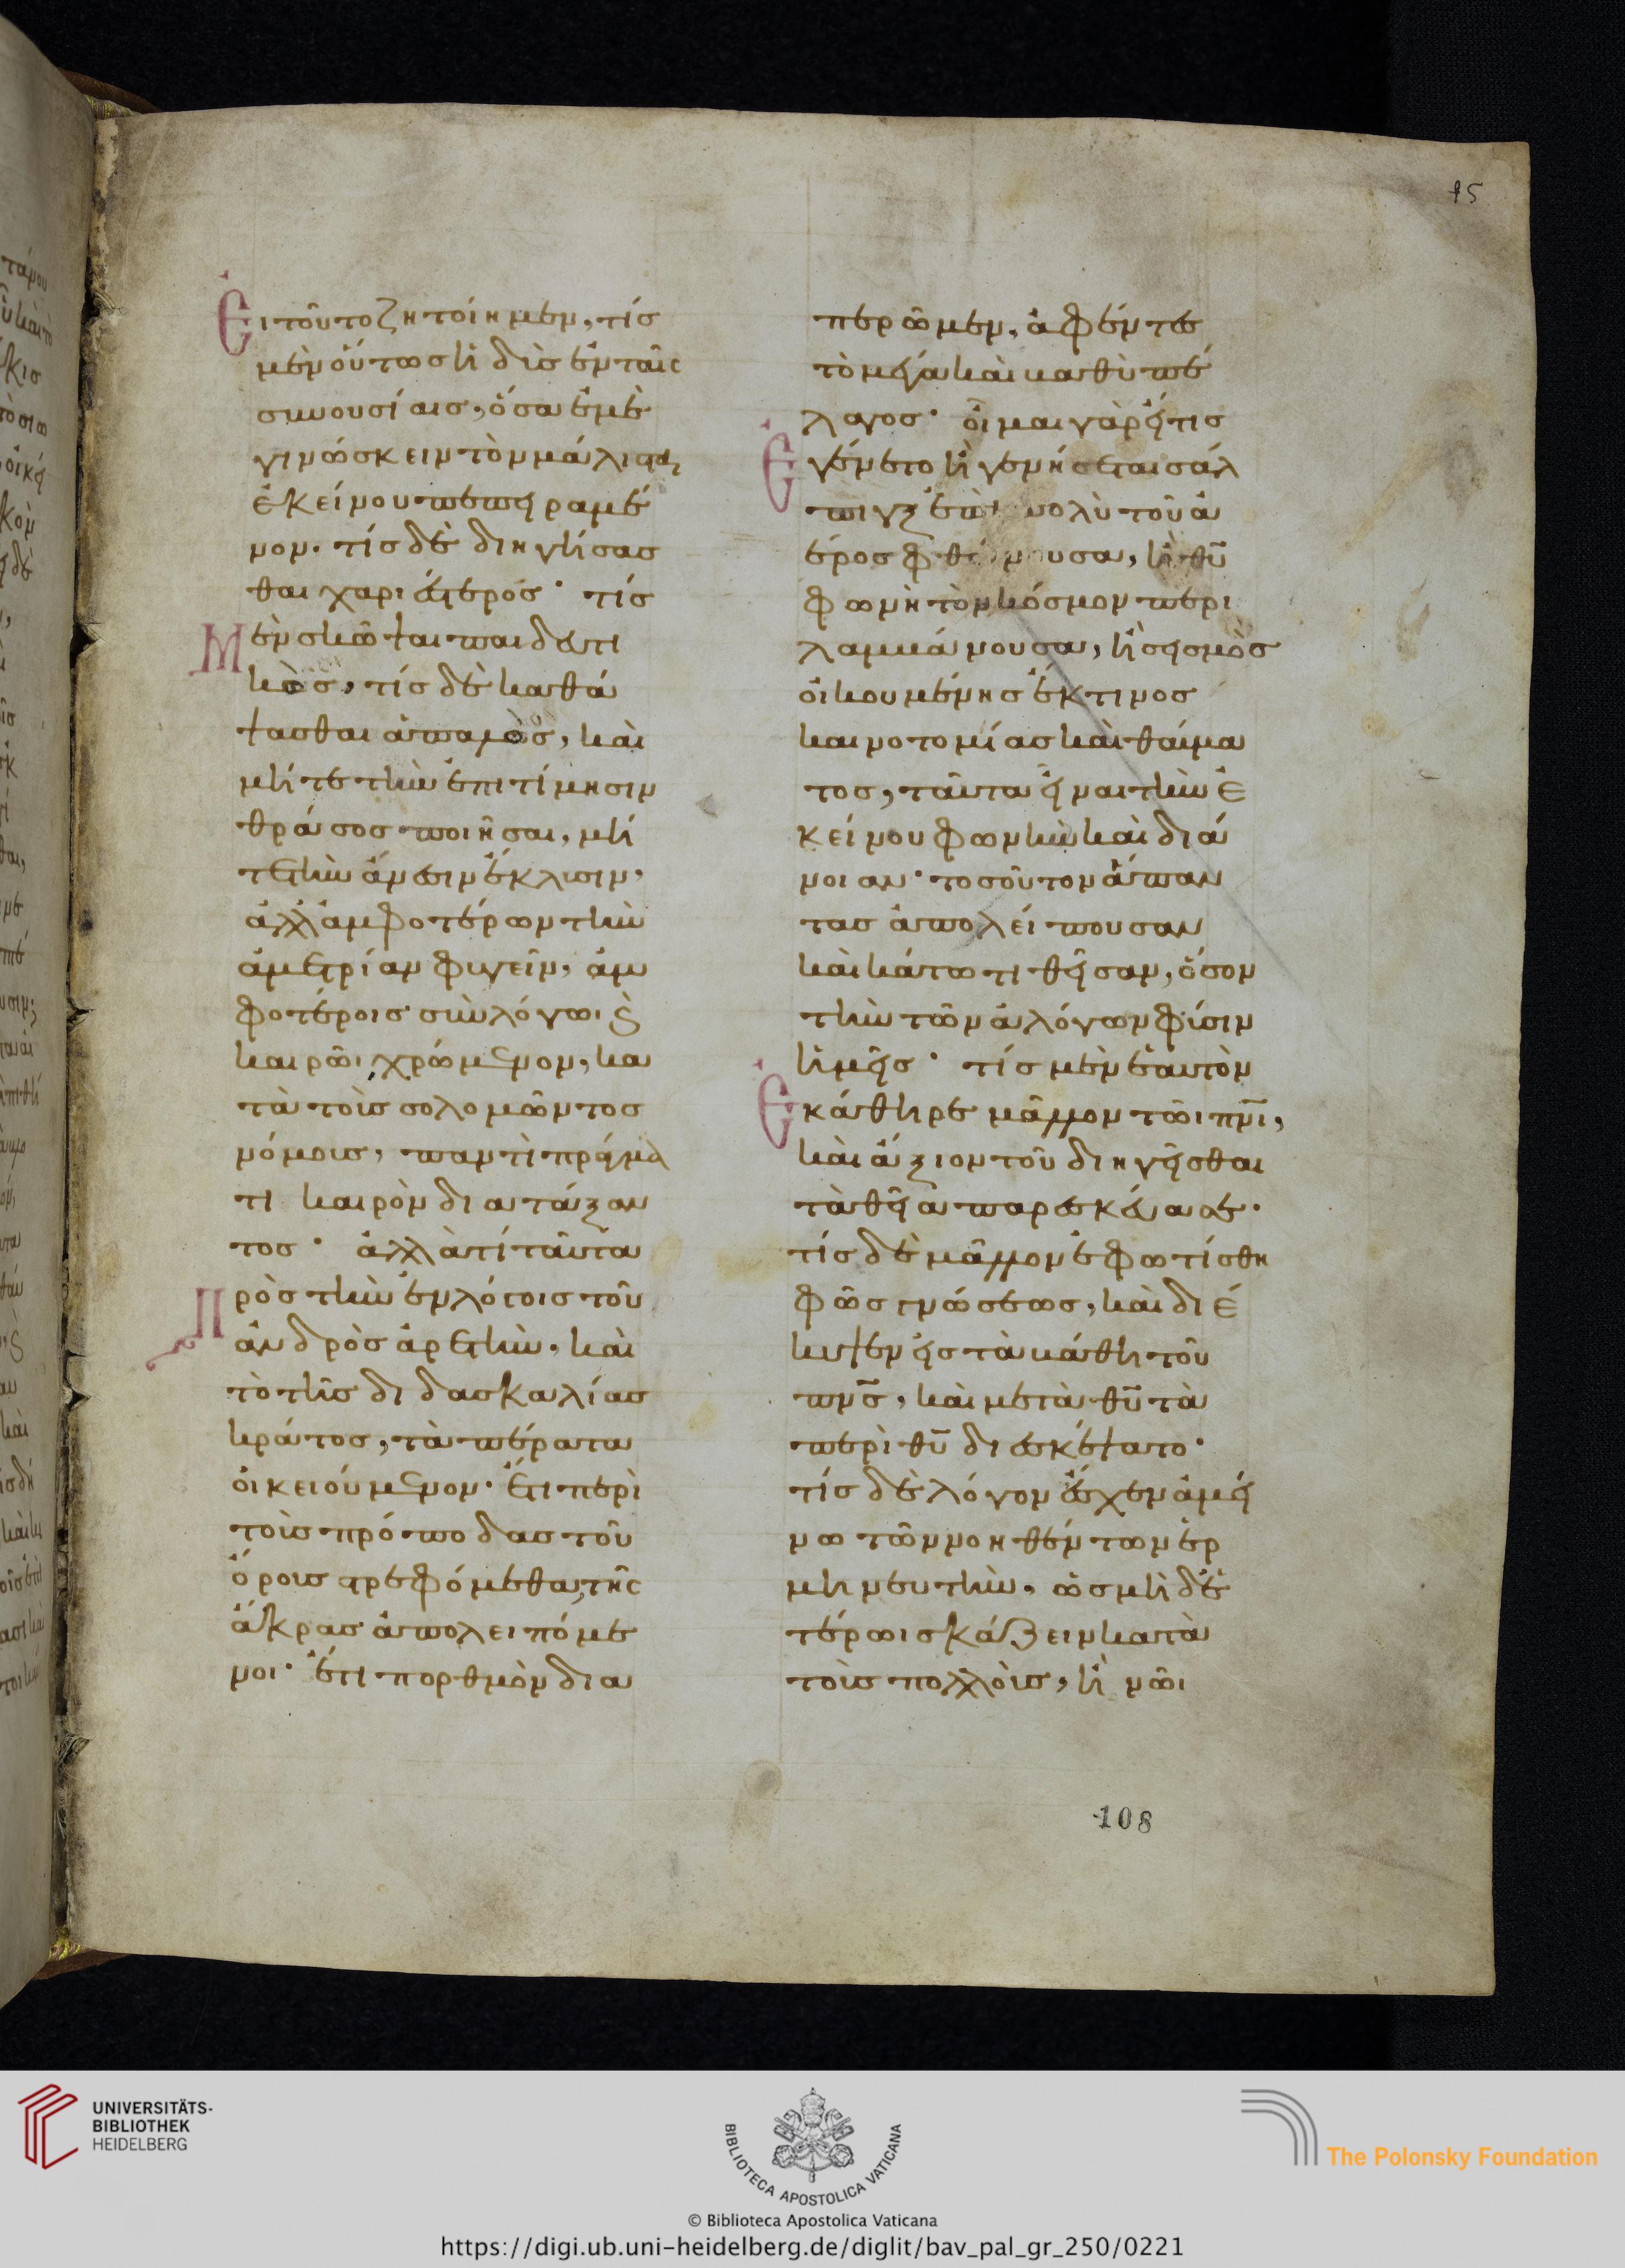 15
Ειτοῦτο ζητοίημεν, τίς
μὲν οὕτως ἡδὺς ἐν ταῖς
συνουσίαις, ὅσα ἐμὲ
γινώσκειν τὸν μάλιστα
ἐκείνου πεπειραμέ
νον. τίς δὲ διηγήσασ
θαι χαριέστερος· τίς
Μὲν σκῶψαι παιδευτι
κὸς, τίς δὲ καθά
ψασθαι ἁπαλὸς, καὶ
μήτε τὴν ἐπιτίμησιν
θράσος ποιῆσαι, μή
τε τὴν ἄνεσιν ἔκλυσιν,
ἀλλ' ἀμφοτέρων τὴν
ἀμετρίαν φυγεῖν, ἀμ
φοτέροις σὺν λόγωι ϗ
καιρῶι χρώμενον, κα
τὰ τοὺς σολομῶντος
νόμους, παντὶ πράγμα
τι καιρὸν διατάξαν
τος· ἀλλὰ τί ταῦτα
Πρὸς τὴν ἐν λόγοις τοῦ
ἀνδρὸς ἀρετὴν, καὶ
τὸ τῆς διδασκαλίας
κράτος, τὰ πέρατα
οἰκειούμενον· ἔτι περὶ
τοὺς πρόποδας τοῦ
ὄρους στρεφόμεθα, τῆς
ἄκρας ἀπολειπόμε
νοι· ἔτι πορθμὸν δια
περῶμεν, ἀφέντες
τὸ μέγα καὶ βαθὺ πέ
λαγος· οἶμαι γὰρ εἴ τις
Ἐγένετο ἢ γενήσεται σάλ
πιγξ ἐπὶ πολὺ τοῦ ἀ
έρος φθάνουσα, ἢ θυ
φωνὴ τὸν κόσμον περι
λαμβάνουσα, ἢ σεισμὸς
οἰκουμένης ἔκ τινος
καινοτομίας καὶ θαύμα
τος, ταῦτα εἶναι τὴν ἐ
κείνου φωνὴν καὶ διά
νοιαν· τοσοῦτον ἅπαν
τας ἀπολείπουσαν
καὶ κάτω τιθεῖσαν, ὅσον
τὴν τῶν ἀλόγων φύσιν
ἡμεῖς· τίς μὲν ἑαυτὸν
Ἐκάθηρε μᾶλλον τῶι πνι,
καὶ ἄξιον τοῦ διηγεῖσθαι
τὰ θεῖα παρεσκεύασε.
τίς δὲ μᾶλλον ἐφωτίσθη
φῶς γνώσεως, καὶ διέ
κυψεν εἰς τὰ βάθη τοῦ
πνς, καὶ μετὰ θυ τὰ
περὶ θυ διεσκέψατο·
τίς δὲ λόγον ἔσχεν ἀμεί
νω τῶν νοηθέντων ἑρ
μηνευτὴν, ὡς μὴ δὲ
τέρωι σκάζειν κατὰ
τοὺς πολλοὺς, ἢ νῶι
108
UNIVERSITÄTS-
BIBLIOTHEK
HEIDELBERG
BIBLIOTECA APOSTOLICA VATICANA
The Polonsky Foundation
© Biblioteca Apostolica Vaticana
https://digi.ub.uni-heidelberg.de/diglit/bav_pal_gr_250/0221